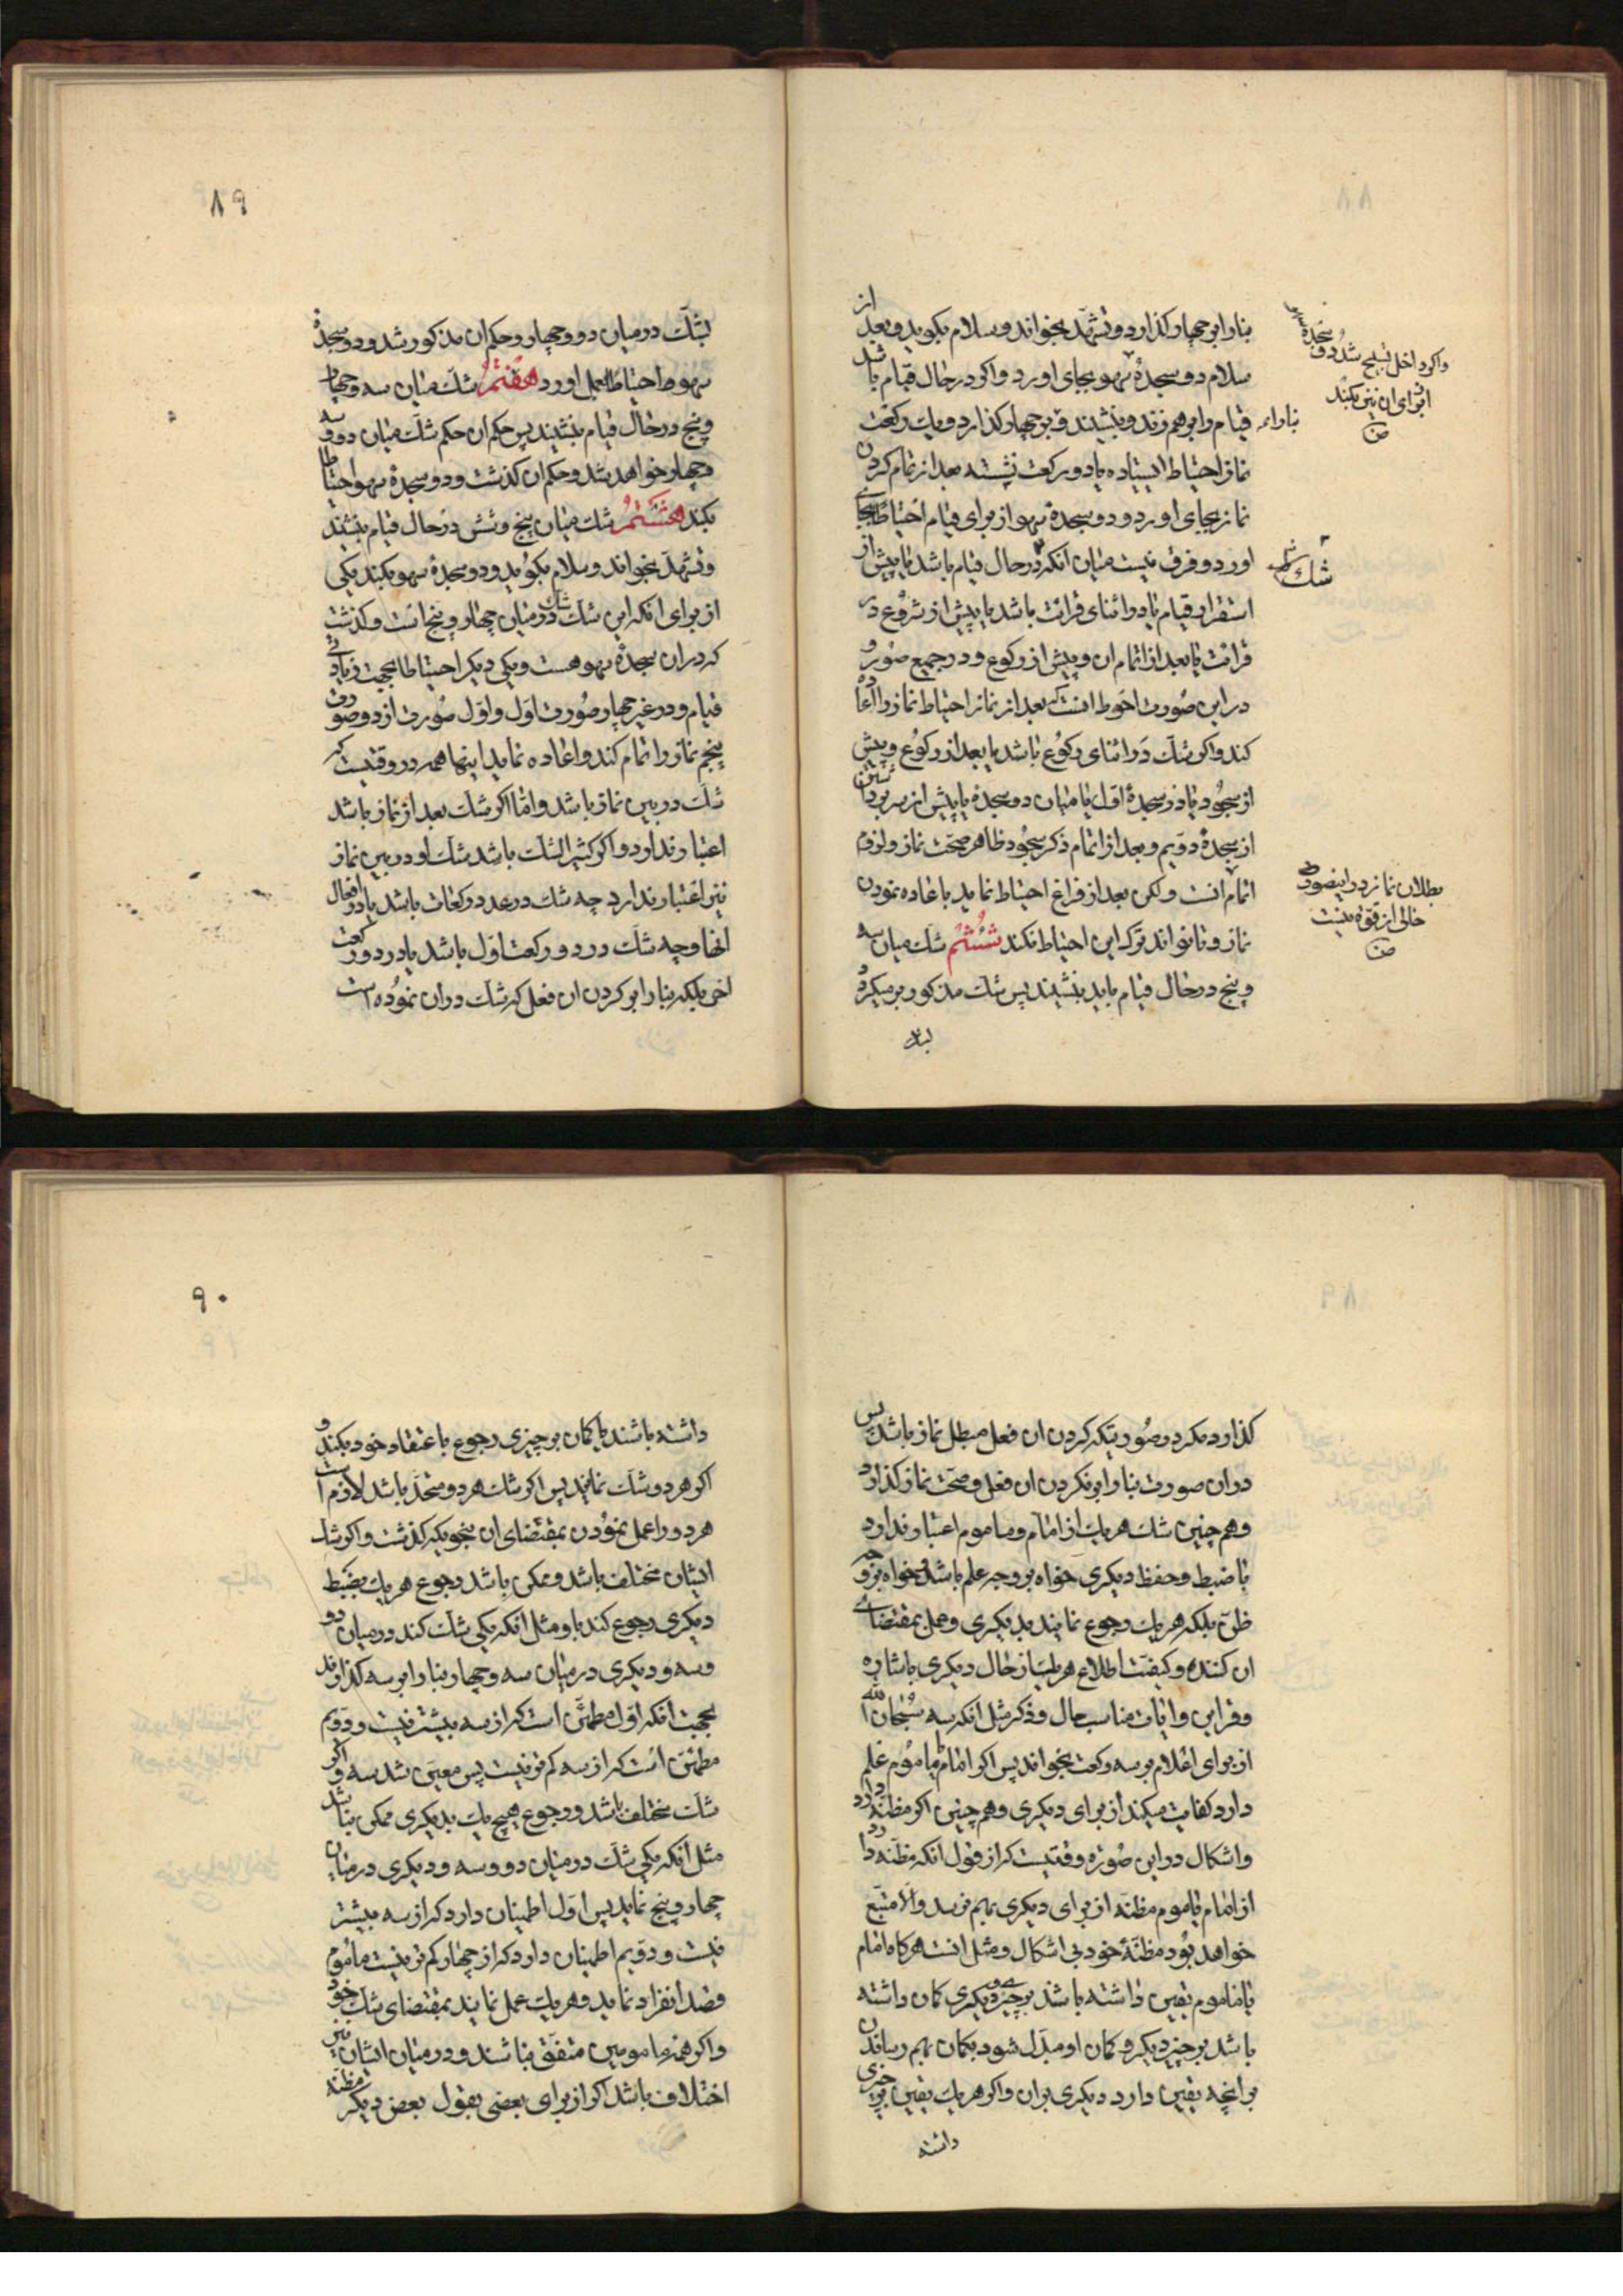 بنا را بر چهار گذارد و تشهد بخواند و سلام بگوید و بعد از
سلام دو سجدهٔ سهو بجای اورد و اگر در حال قیام باشد
قیام را بر هم زند و بنشیند و بر چهار گذارد و یك ركعت
نماز احتیاط ایستاده یا دو ركعت نشسته بعد از تمام كردن
نماز بجای اورد و دو سجدهٔ سهو از برای قیام احتیاطا بجای
اورد و فرق نیست میان انكه در حال قیام باشد یا پیش از
استقرار قیام یا در اثنای قرائت باشد یا پیش از شروع در
قرائت یا بعد از اتمام ان و پیش از ركوع و در جمیع صور و
در این صورت احوط انست كه بعد از نماز احتیاط نماز را اعاده
كند و اگر شك در اثنای ركوع باشد یا بعد از ركوع و پیش
از سجود یا در سجدهٔ اول یا میان دو سجده یا پیش از سر برداشتن
از سجدهٔ دویم و بعد از اتمام ذكر سجود ظاهر صحت نماز و لزوم
اتمام انست و لكن بعد از فراغ احتیاط نماید باعاده نمودن
نماز و تا تواند ترك این احتیاط نكند ششم شك میان سه
و پنج در حال قیام باید بنشیند پس شك مذكور بر میگردد
واگر داخل تسبیح شد دو سجده
از برای ان نیز بكند
بنا را بر
شك
بطلان نماز در اینصورت
خالی از قوة نیست
۸۹
بشك در میان دو و چهار و حكم ان مذكور شد و دو سجدهٔ
سهو را احتیاطا بعمل اورد هفتم شك میان سه و چهار
و پنج در حال قیام بنشیند پس حكم ان حكم شك میان دو و سه
و چهار خواهد شد و حكم ان گذشت و دو سجدهٔ سهو احتیاطا
بكند هشتم شك میان پنج و شش در حال قیام بنشیند
و تشهد بخواند و سلام بگوید و دو سجدهٔ سهو بكند یكی
از برای انكه این شك شك در میان چهار و پنج است و گذشت
كه در ان سجدهٔ سهو هست و یكی دیگر احتیاطا بجهت زیادتی
قیام و در غیر چهار صورت اول و اول صورت از دو صورت
پنجم نماز را تمام كند و اعاده نماید اینها همه در وقتیست كه
شك در بین نماز باشد و اما اگر شك بعد از نماز باشد
اعتبار ندارد و اگر كثیر الشك باشد شك او در بین نماز
نیز اعتبار ندارد چه شك در عدد ركعات باشد یا در افعال
انها و چه شك در دو ركعت اول باشد یا در دو ركعت
اخر بلكه بنا را بر كردن ان فعل كه شك در ان نموده است
گذارد مگر در صورتیكه كردن ان فعل مبطل نماز باشد پس
در ان صورت بنا را بر نكردن ان فعل و صحت نماز گذارد
و هم چنین شك هر یك از امام و ماموم اعتبار ندارد
با ضبط و حفظ دیگری خواه بر وجه علم باشد و خواه بر وجه
ظن بلكه هر یك رجوع نمایند بدیگری و عمل بمقتضای
ان كنند و كیفیت اطلاع هر یك از حال دیگری باشاره
و قراین و ایات مناسب حال و ذكر مثل انكه سه سبحان الله
از برای اعلام بر سه ركعت بخواند پس اگر امام یا ماموم علم
دارد كفایت میكند از برای دیگری و هم چنین اگر مظنه دارد
و اشكال در این صوره وقتیست كه از قول انكه مظنه دارد
از امام یا ماموم مظنه از برای دیگری بهم نرسد و الا متبع
خواهد بود مظنهٔ خود بی اشكال و مثل انست هر گاه امام
یا ماموم یقین داشته باشد بر چیزی و دیگری گمان داشته
باشد بر چیز دیگر و گمان او مبدل شود بگمان بهم رساندن
بر انچه یقین دارد دیگری بران و اگر هر یك یقین بر چیزی
داشته
۹۰
داشته باشند یا گمان بر چیزی رجوع باعتقاد خود بكنند و
اگر هر دو شك نمایند پس اگر شك هر دو متحد باشد لازم است
هر دو را عمل نمودن بمقتضای ان بنحویكه گذشت و اگر شك
ایشان مختلف باشد و ممكن باشد رجوع هر یك بضبط
دیگری رجوع كند باو مثل انكه یكی شك كند در میان دو
و سه و دیگری در میان سه و چهار بنا را بر سه گذارند
بجهت انكه اول مطمئن است كه از سه بیشتر نیست و دویم
مطمئن است كه از سه كمتر نیست پس معین شد سه و اگر
شك مختلف باشد و رجوع هیچ یك بدیگری ممكن نباشد
مثل انكه یكی شك در میان دو و سه و دیگری در میان
چهار و پنج نماید پس اول اطمینان دارد كه از سه بیشتر
نیست و دویم اطمینان دارد كه از چهار كمتر نیست ماموم
قصد انفراد نماید و هر یك عمل نمایند بمقتضای شك خود
و اگر همه مامومین متفق نباشند و در میان ایشان نیز
اختلاف باشد اگر از برای بعضی بقول بعض دیگر مظنه